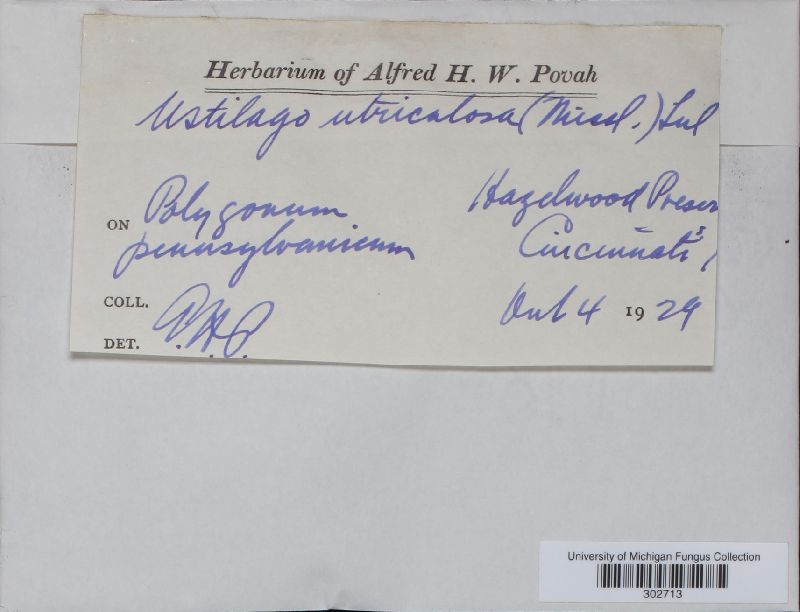 Herbarium of Alfred H. W. Povah
Ustilago utriculosa (        ) Tul
Hazelwood Preser
ON Polygonum
pennsylvanicum
Cincinnati
COLL.
DET.
4 1929
University of Michigan Fungus Collection
302713